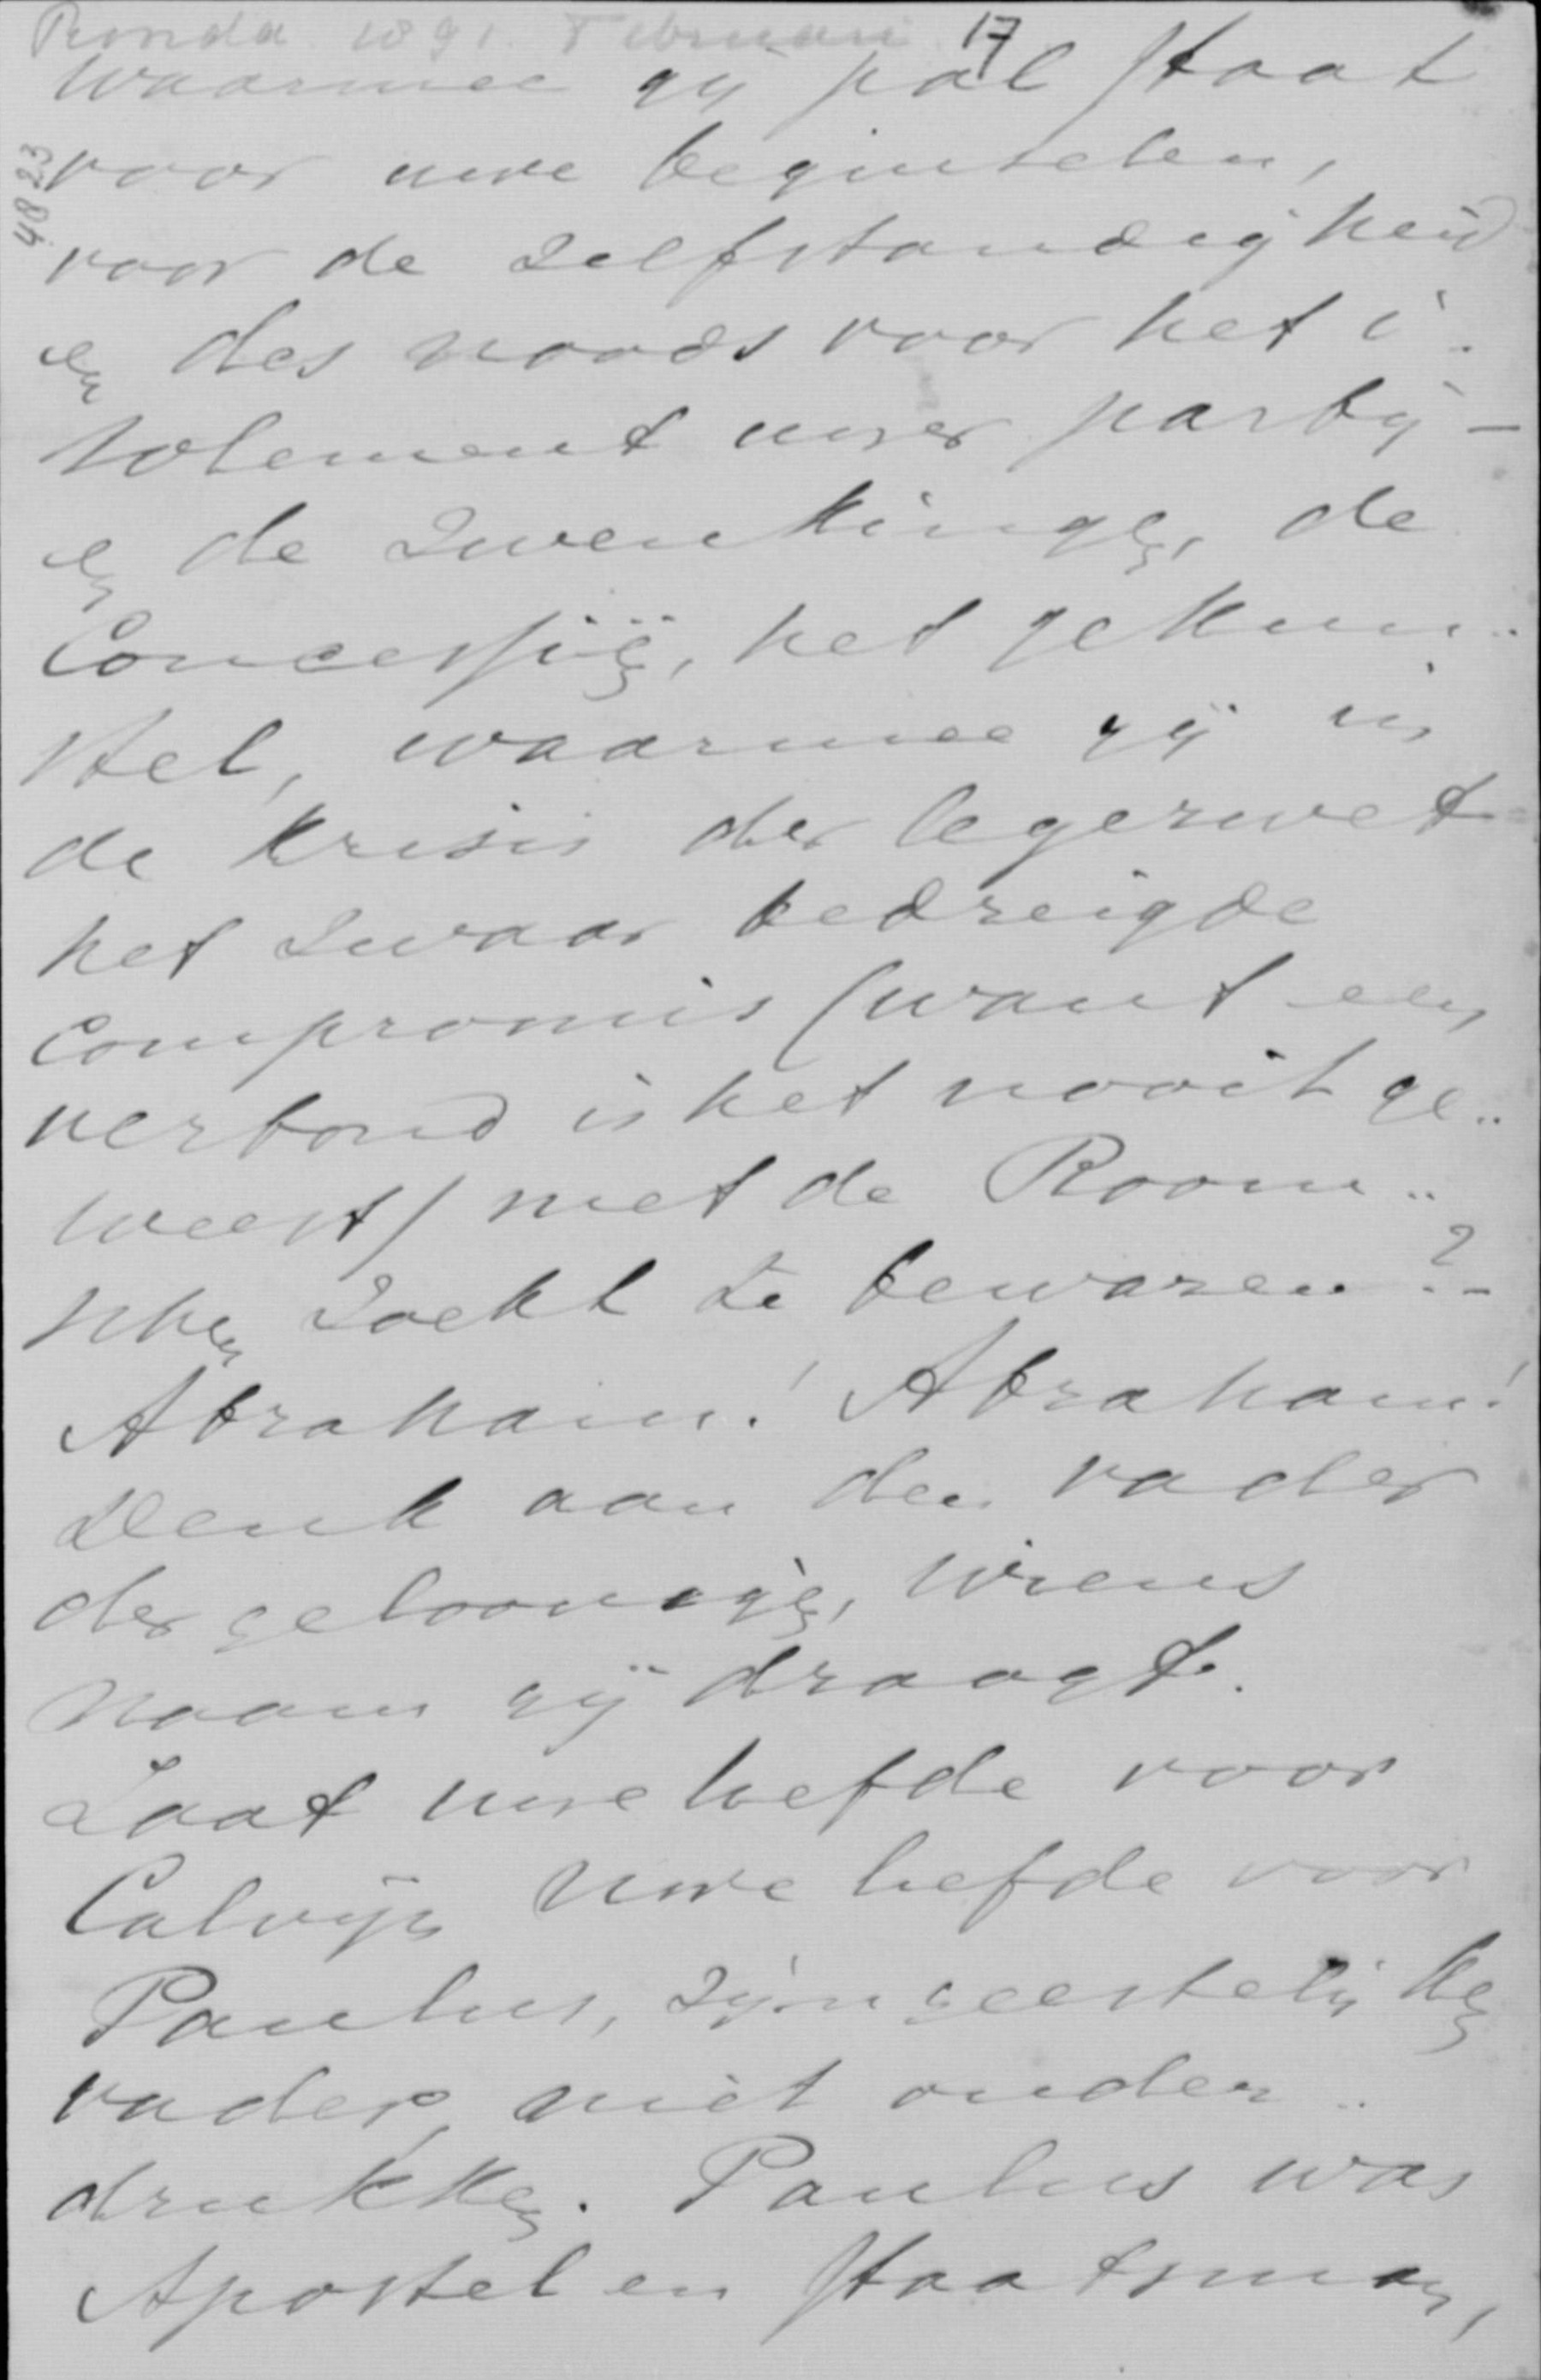 Ronda 1891. Februari 17
waarmee gij pal staat
4823
voor uwe beginselen,
voor de zelfstandigheid
en des noods voor het i-
solement uwer partij -
en de zwenkingen, de
Concessiën, het gekun..
stel, waarmee gij in
de krisis der legerwet
het zwaar bedreigde
Compromis (want een
verbond is het nooit ge..
weest) met de Room..
schen zoekt te bewaren? -
Abraham! Abraham!
Denk aan den vader
der geloovigen, wiens
naam gij draagt.
Laat uwe liefde voor
Calvijn uwe liefde voor
Paulus, zijn geestelijken
vader, niet onder..
drukken. Paulus was
Apostel en Staatsman,